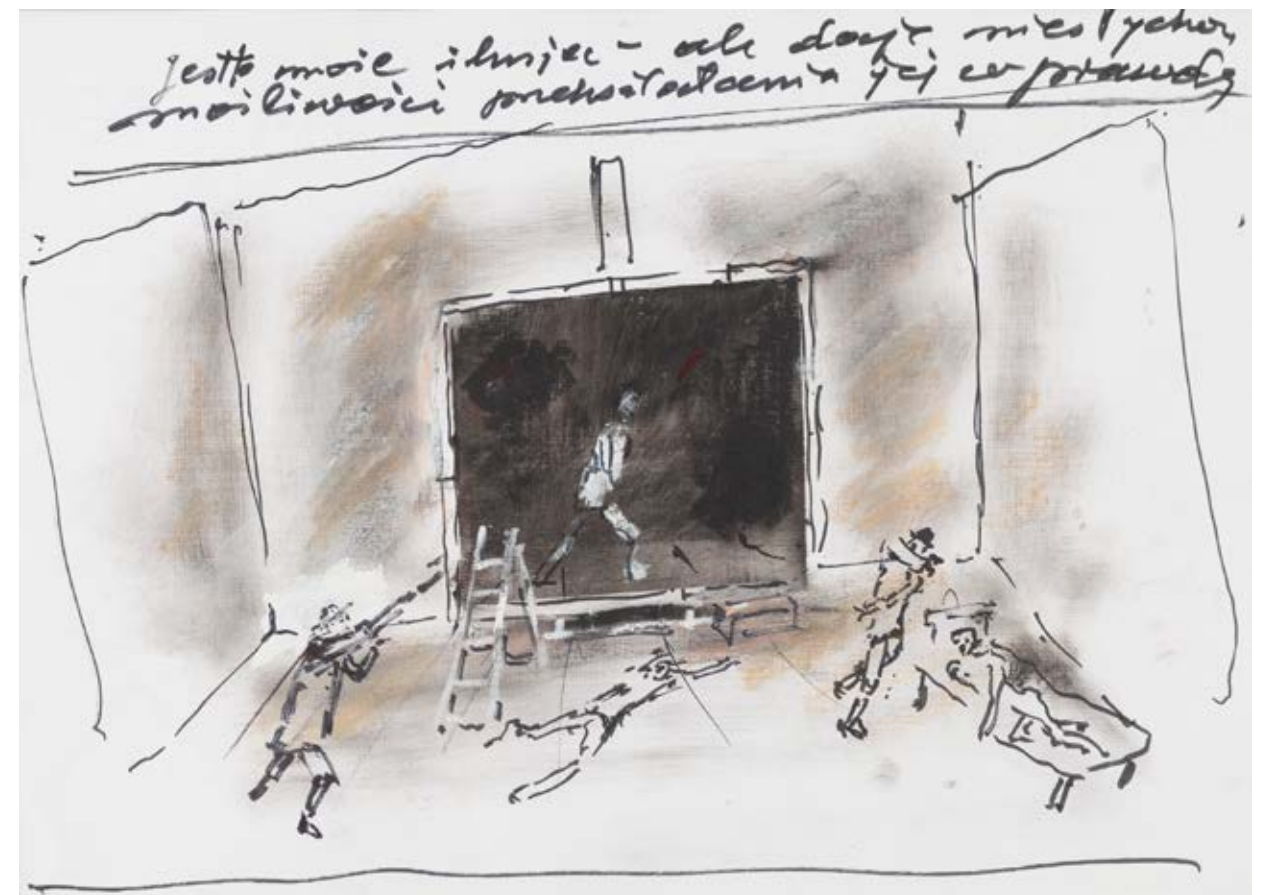 Jest to może iluzja – ale daje niesłychane
możliwości przekształcania jej w prawdę